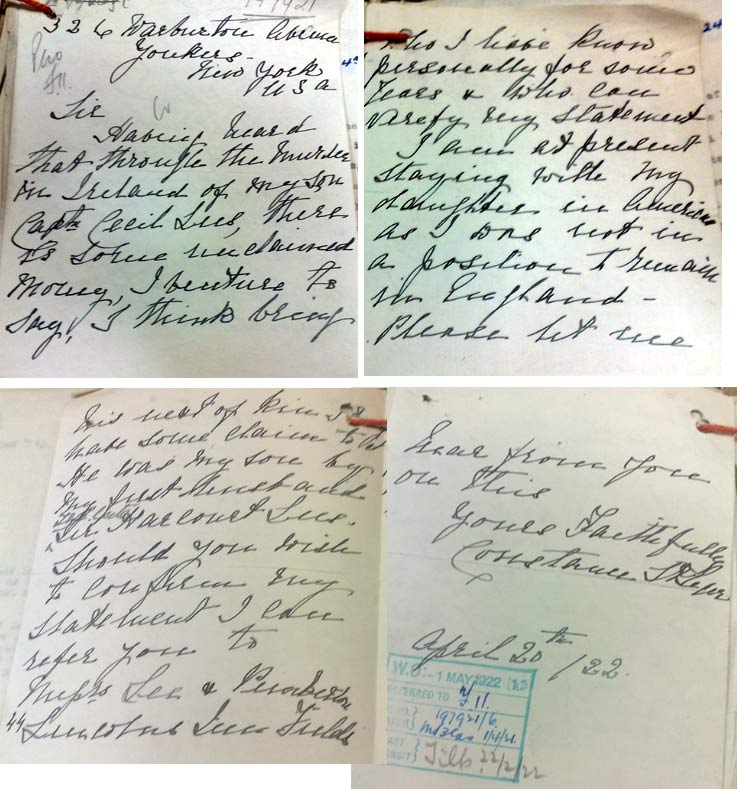 197921
326 Warburton Avenue
Yonkers.
New York
U S A
Sir
Having heard
that through the murder
in Ireland of my son
Capt Cecil Lees, there
is some unclaimed
money, I venture to
say, I think being
his next of kin I
have some claim to it
He was my son by
my first Husband
Sir Harcourt Lees.
Should you wish
to confirm my
statement I can
refer you to
Messrs Lee & Pemberton
44 Lincolns Inn Fields
who I have know
personally for some
years & who can
verify my statement
I am at present
staying with my
daughter in America
as I was not in
a position to remain
in England -
Please let me
hear from you
on this
Yours Faithfully
Constance
April 20th /22.
W.O. - 1 MAY 1922
REFERRED TO F 11.
197921/6
22/2/22
24